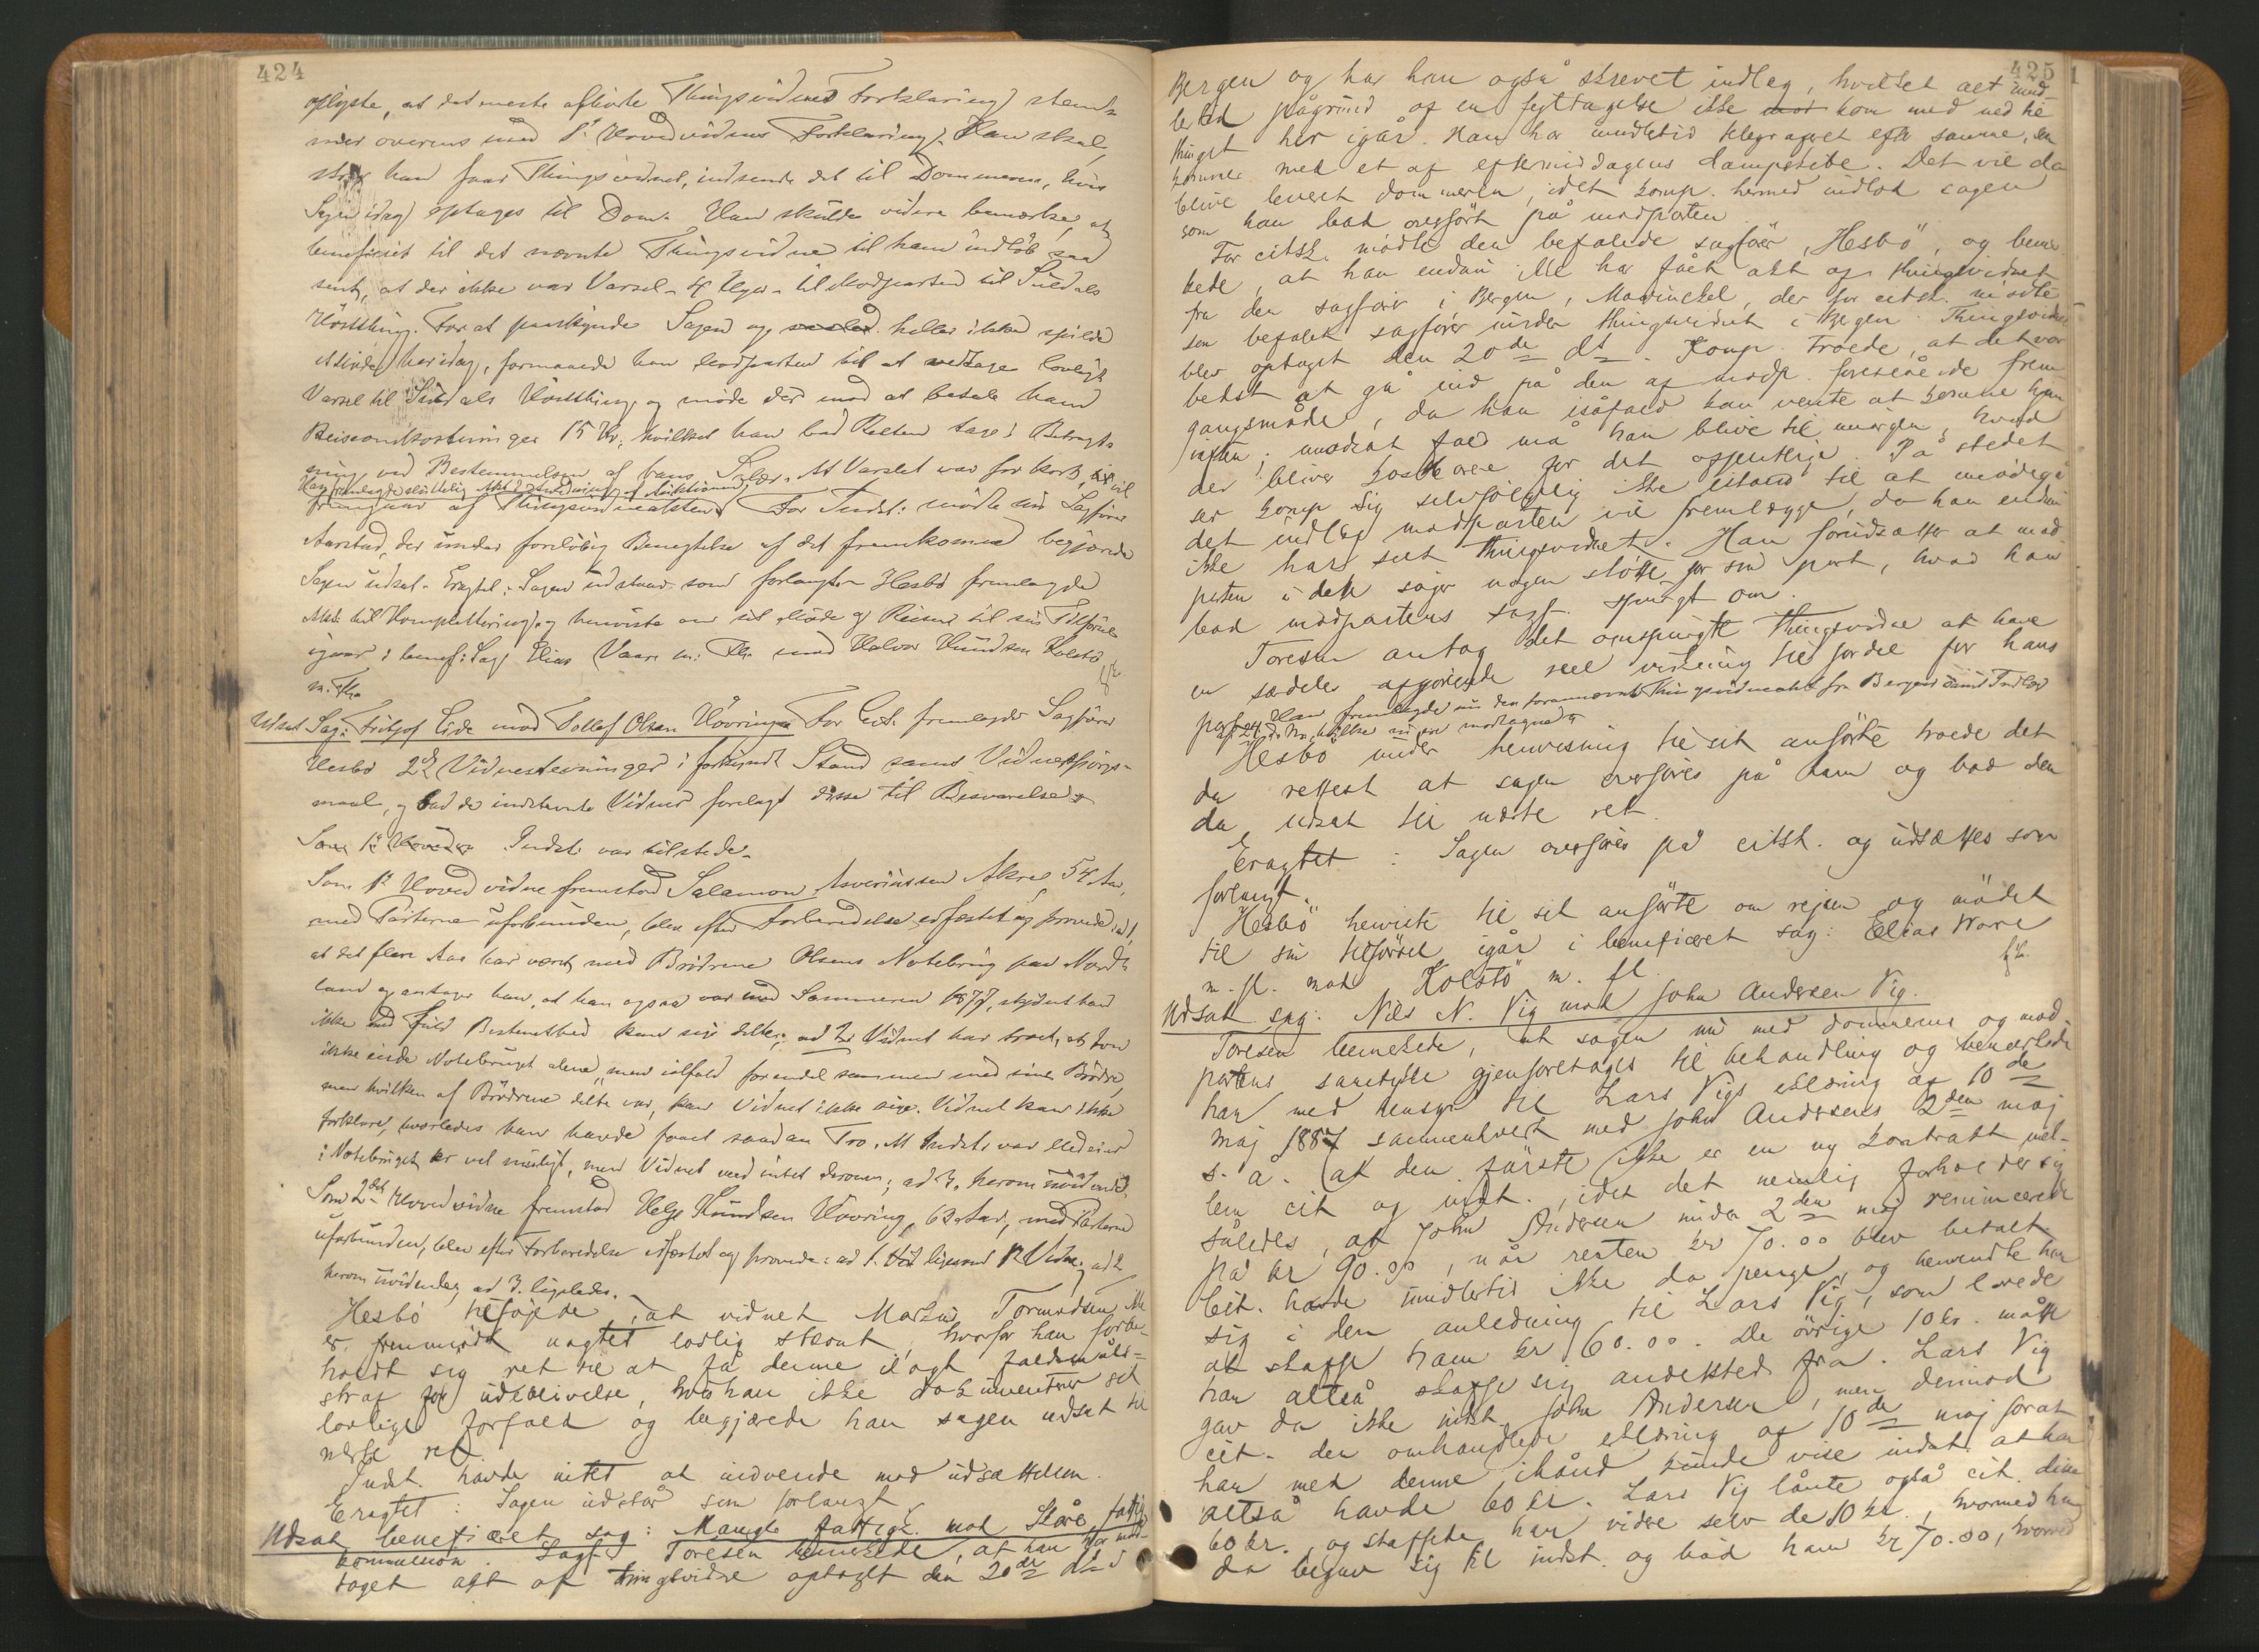 424
oplyste, at det meste afhørte Thingsvidnes Forklaring stem-
mer overens med 1ste Hovedvidnes Forklaring. Han skal,
strax han faar Thingsvidnet, indsende det til Dommeren, hvis
Sagen idag optages til Dom. Han skulde videre bemærke, at
beneficiet til det nævnte Thingsvidne til ham indløb saa
sent, at der ikke var Varsel - 4 Uger - til Modparten til Suldals
Høstthing. For at paaskynde Sagen og heller ikke spilde
heridag, formaaede han Modparten til at vedtage lovligt
Varsel til Suldals Høstthing og møde der mod at betale ham
Reiseomkostninger 15 Kr, hvilket han bad Retten tage i Betragt-
ning ved Bestemmelsen af hans Salær. At Varslet var for kort, vil
Han fremlagde sluttelig Akt
fremgaa af Thingsvidneakten. For Indst: mødte nu Sagfører
Aarstad, der under foreløbig Benegtelse af det fremkomne begjærede
Sagen udsat. Eragtet: Sagen udstaar som forlangt. Hesbø fremlagde
Akt til Komplettering og henviste om sit Møde og Reisen til sin Tilførsel
igaar i benef: Sag Elias Vaare m. Fl. mod Halvor Knudsen Kolstø
m. Fl.
Udsat Sag: Fritjof Eide mod Tollef Olsen Høvring. For Cit. fremlagde Sagfører
Hesbø 2de Vidnestevninger i forkyndt Stand samt Vidnespørgs-
maal, og bad de indstevnte Vidner forelagt disse til Besvarelse.
Indst: var tilstede.
Som 1ste Hovedvidne fremstod Salamon Asveriussen Akre 54 Aar,
med Parterne uforbunden, blev efter Forberedelse edfæstet og provede: ad 1,
at det flere Aar har været med Brødrene Olsens Notebrug paa Nord-
land og antager han, at han ogsaa var med Sommeren 1877, skjønt han
ikke med fuld Bestemthed kan sige dette; ad 2. Vidnet har troet, at han
ikke eiede Notebruget alene, men ialfald forendel sammen med sine Brødre,
men hvilken af Brødrene dette var, kan Vidnet ikke sige. Vidnet kan ikke
forklare, hvorledes han havde faaet saadan Tro. At Indst: var Medeier
i Notebruget er vel muligt, men Vidnet ved intet derom; ad 3. herom uvidende.
Som 2det Hovedvidne fremstod Helge Knudsen Høvring, 62 Aar, med Parterne
uforbunden, blev efter Forberedelse edfæstet og provede: ad 1. ligesom 1ste Vidne; ad 2
herom uvidende, ad 3. ligeledes.
Hesbø tilføjede, at vidnet Markus Tormodsen ikke
er fremmødt uagtet lovlig stevnt, hvorfor han forbe-
holdt sig ret til at få denne ilagt faldsmåls-
straf for udeblivelse, hvis han ikke dokumenterer sit
lovlige forfald og begjærede han sagen udsat til
næste ret.
Indst. havde intet at indvende mod udsættelsen.
Eragtet: Sagen udstår som forlangt.
Udsat beneficeret sag: Mangle fattigk. mod Skåre fattig-
kommission. Sagf. Toresen bemerkede, at han har mod-
taget akt af thingsvidne optaget den 20de ds i
425
Bergen og har han også skrevet indleg, hvilket alt imid-
lertid pågrund af en fejltagelse ikke kom med ned til
thinget her igår. Han har imidlertid telegraferet efter samme, der
kommer med et af eftermiddagens dampskibe. Det vil da
blive leveret dommeren, idet komp. hermed indlod sagen
som han bad overført på modparten.
For citsk. mødte den befalede sagfører, Hesbø, og bemer-
kede, at han endnu ikke har fået akt af thingsvidnet
fra den sagfører i Bergen, Mowinckel, der for citsk. mødte
som befalet sagfører under thingsvidnet i Bergen. Thingsvidnet
blev optaget den 20de ds. Komp. troede, at det var
bedst at gå ind på den af modp. foreslåede frem-
gangsmåde, da han isåfald kan vente at komme hjem
iaften; modsat fald må han blive til imorgen, hvad
der bliver kostbarere for det offentlige. På stedet
ser komp. sig selvfølgelig ikke istand til at imødegå
det indleg modparten vil fremlægge, da han endnu
ikke har set thingsvidnet. Han forudsætter at mod-
parten i dette søger nogen støtte for sin part, hvad han
bad modpartens sagf. spurgt om.
Toresen antog det omspurgte thingsvidne at have
en særdeles afgjørende reel virkning til fordel for hans
part. Han fremlagde nu den forannævnte Thingsvidneakt fra Bergen samt Indlæg
af 24 ds, hvilke nu er modtagne.
Hesbø under henvisning til sit anførte troede det
da rettest at sagen overføres på ham og bad den
da udsat til næste ret.
Eragtet: Sagen overføres på citsk. og udsættes som
forlangt.
Hesbø henviste til sit anførte om rejsen og mødet
til sin tilførsel igår i beneficeret sag: Elias Vaare
m. fl. mod Kolstø m. fl.
Udsat sag: Nils N. Vig mod John Andersen Vig.
Toresen bemerkede, at sagen nu med dommerens og mod-
partens samtykke gjenforetages til behandling og bemærkede
han med hensyn til Lars Vigs erklæring af 10de
maj 1887 sammenholdt med John Andersens 2den maj
s. å. at den første ikke er en ny kontrakt mel-
lem cit. og indst., idet det nemlig forholder sig
således, at John Andersen under 2den maj renuncerede
på kr 90.00, når resten kr 70.00 blev betalt.
Cit. havde imidlertid ikke da penge, og henvendte han
sig i den anledning til Lars Vig, som lovede
at skaffe ham kr 60.00. De øvrige 10 kr. måtte
han altså skaffe sig andetsteds fra. Lars Vig
gav da ikke indst. John Andersen, men derimod
cit. den omhandlede erklæring af 10de maj forat
han med denne ihånd kunde vise indst. at han
altså havde 60 kr. Lars Vig lånte også cit. disse
60 kr., og skaffede han videre selv de 10 kr., hvormed han
da begav sig til indst. og bød ham kr 70.00, hvormed